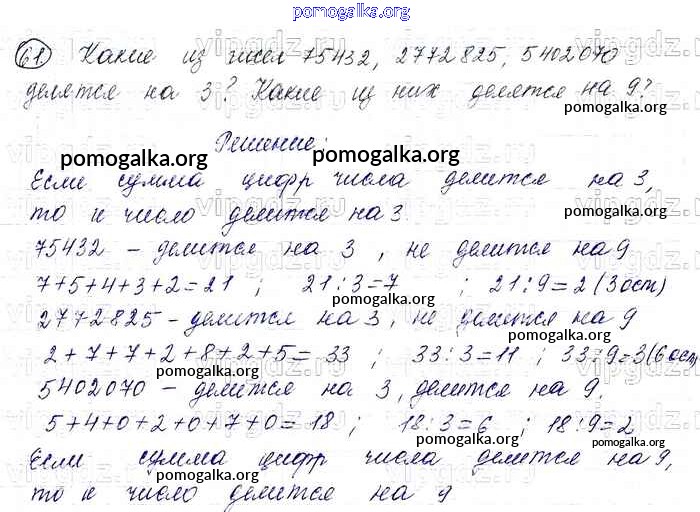 pomogalka.org
61. Какие из чисел 75432, 2772825, 5402070
делятся на 3? Какие из них делятся на 9?
pomogalka.org
Решение:
pomogalka.org
pomogalka.org
Если сумма цифр числа делится на 3,
то и число делится на 3.
pomogalka.org
75432 - делится на 3, не делится на 9
7+5+4+3+2=21 ; 21:3=7 ; 21:9=2 (3 ост)
pomogalka.org
2772825 - делится на 3, не делится на 9
2+7+7+2+8+2+5=33 ; 33:3=11 ; 33:9=3(6 ост
pomogalka.org
pomogalka.org
5402070 - делится на 3, делится на 9.
5+4+0+2+0+7+0=18 ; 18:3=6 ; 18:9=2
pomogalka.org
pomogalka.org
Если сумма цифр числа делится на 9,
pomogalka.org
pomogalka.org
то и число делится на 9